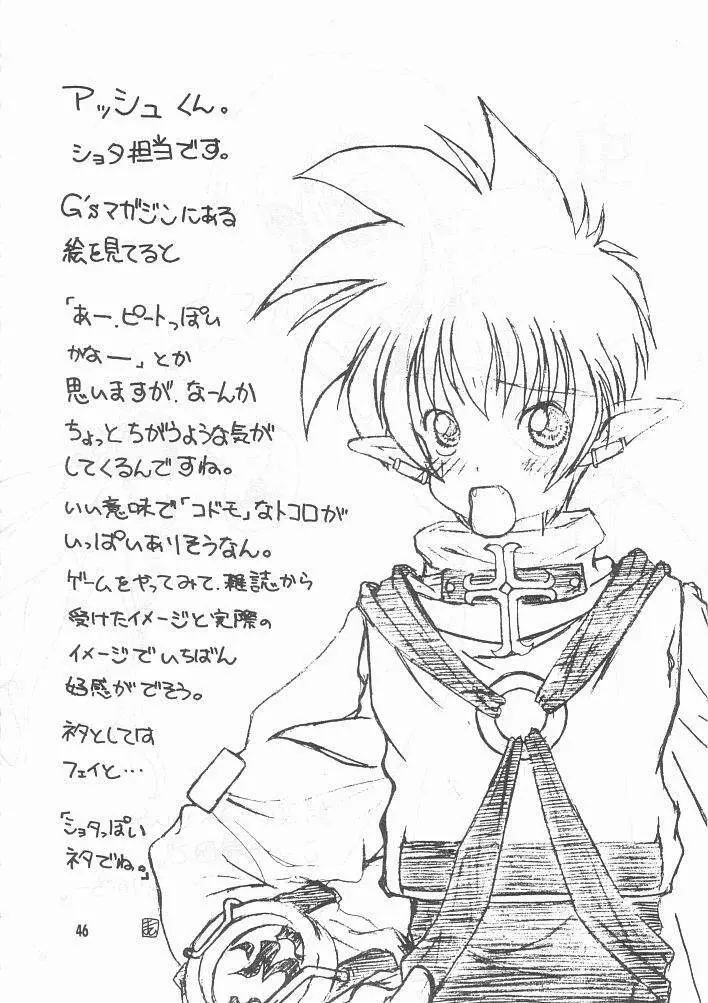 アッシュくん。
ショタ担当です。
G'sマガジンにある
絵を見てると
「あー、ピートっぽい
かなー」とか
思いますが、なーんか
ちょっとちがうような気が
してくるんですね。
いい意味で「コドモ」なトコロが
いっぱいありそうなん。
ゲームをやってみて、雑誌から
受けたイメージと実際の
イメージでいちばん
好感がでそう。
ネタとしては
フェイと…
「ショタっぽい
ネタでね。」
46